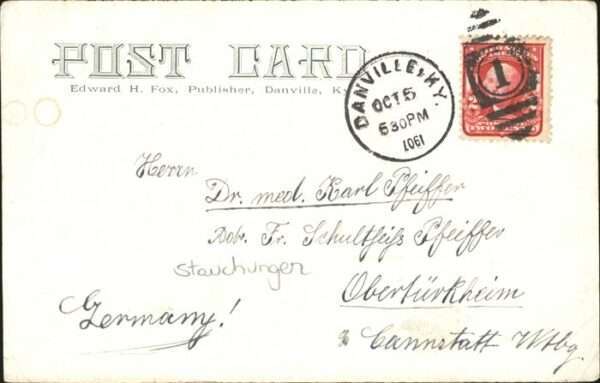 POST CARD
Edward H. Fox, Publisher, Danville, Ky.
DANVILLE, KY.
OCT 5
630PM
1907
1
Herrn
Dr. med. Karl Pfeiffer
Fr. Schultheiß Pfeiffer
Obertürkheim
Germany!
Cannstatt Wtbg.